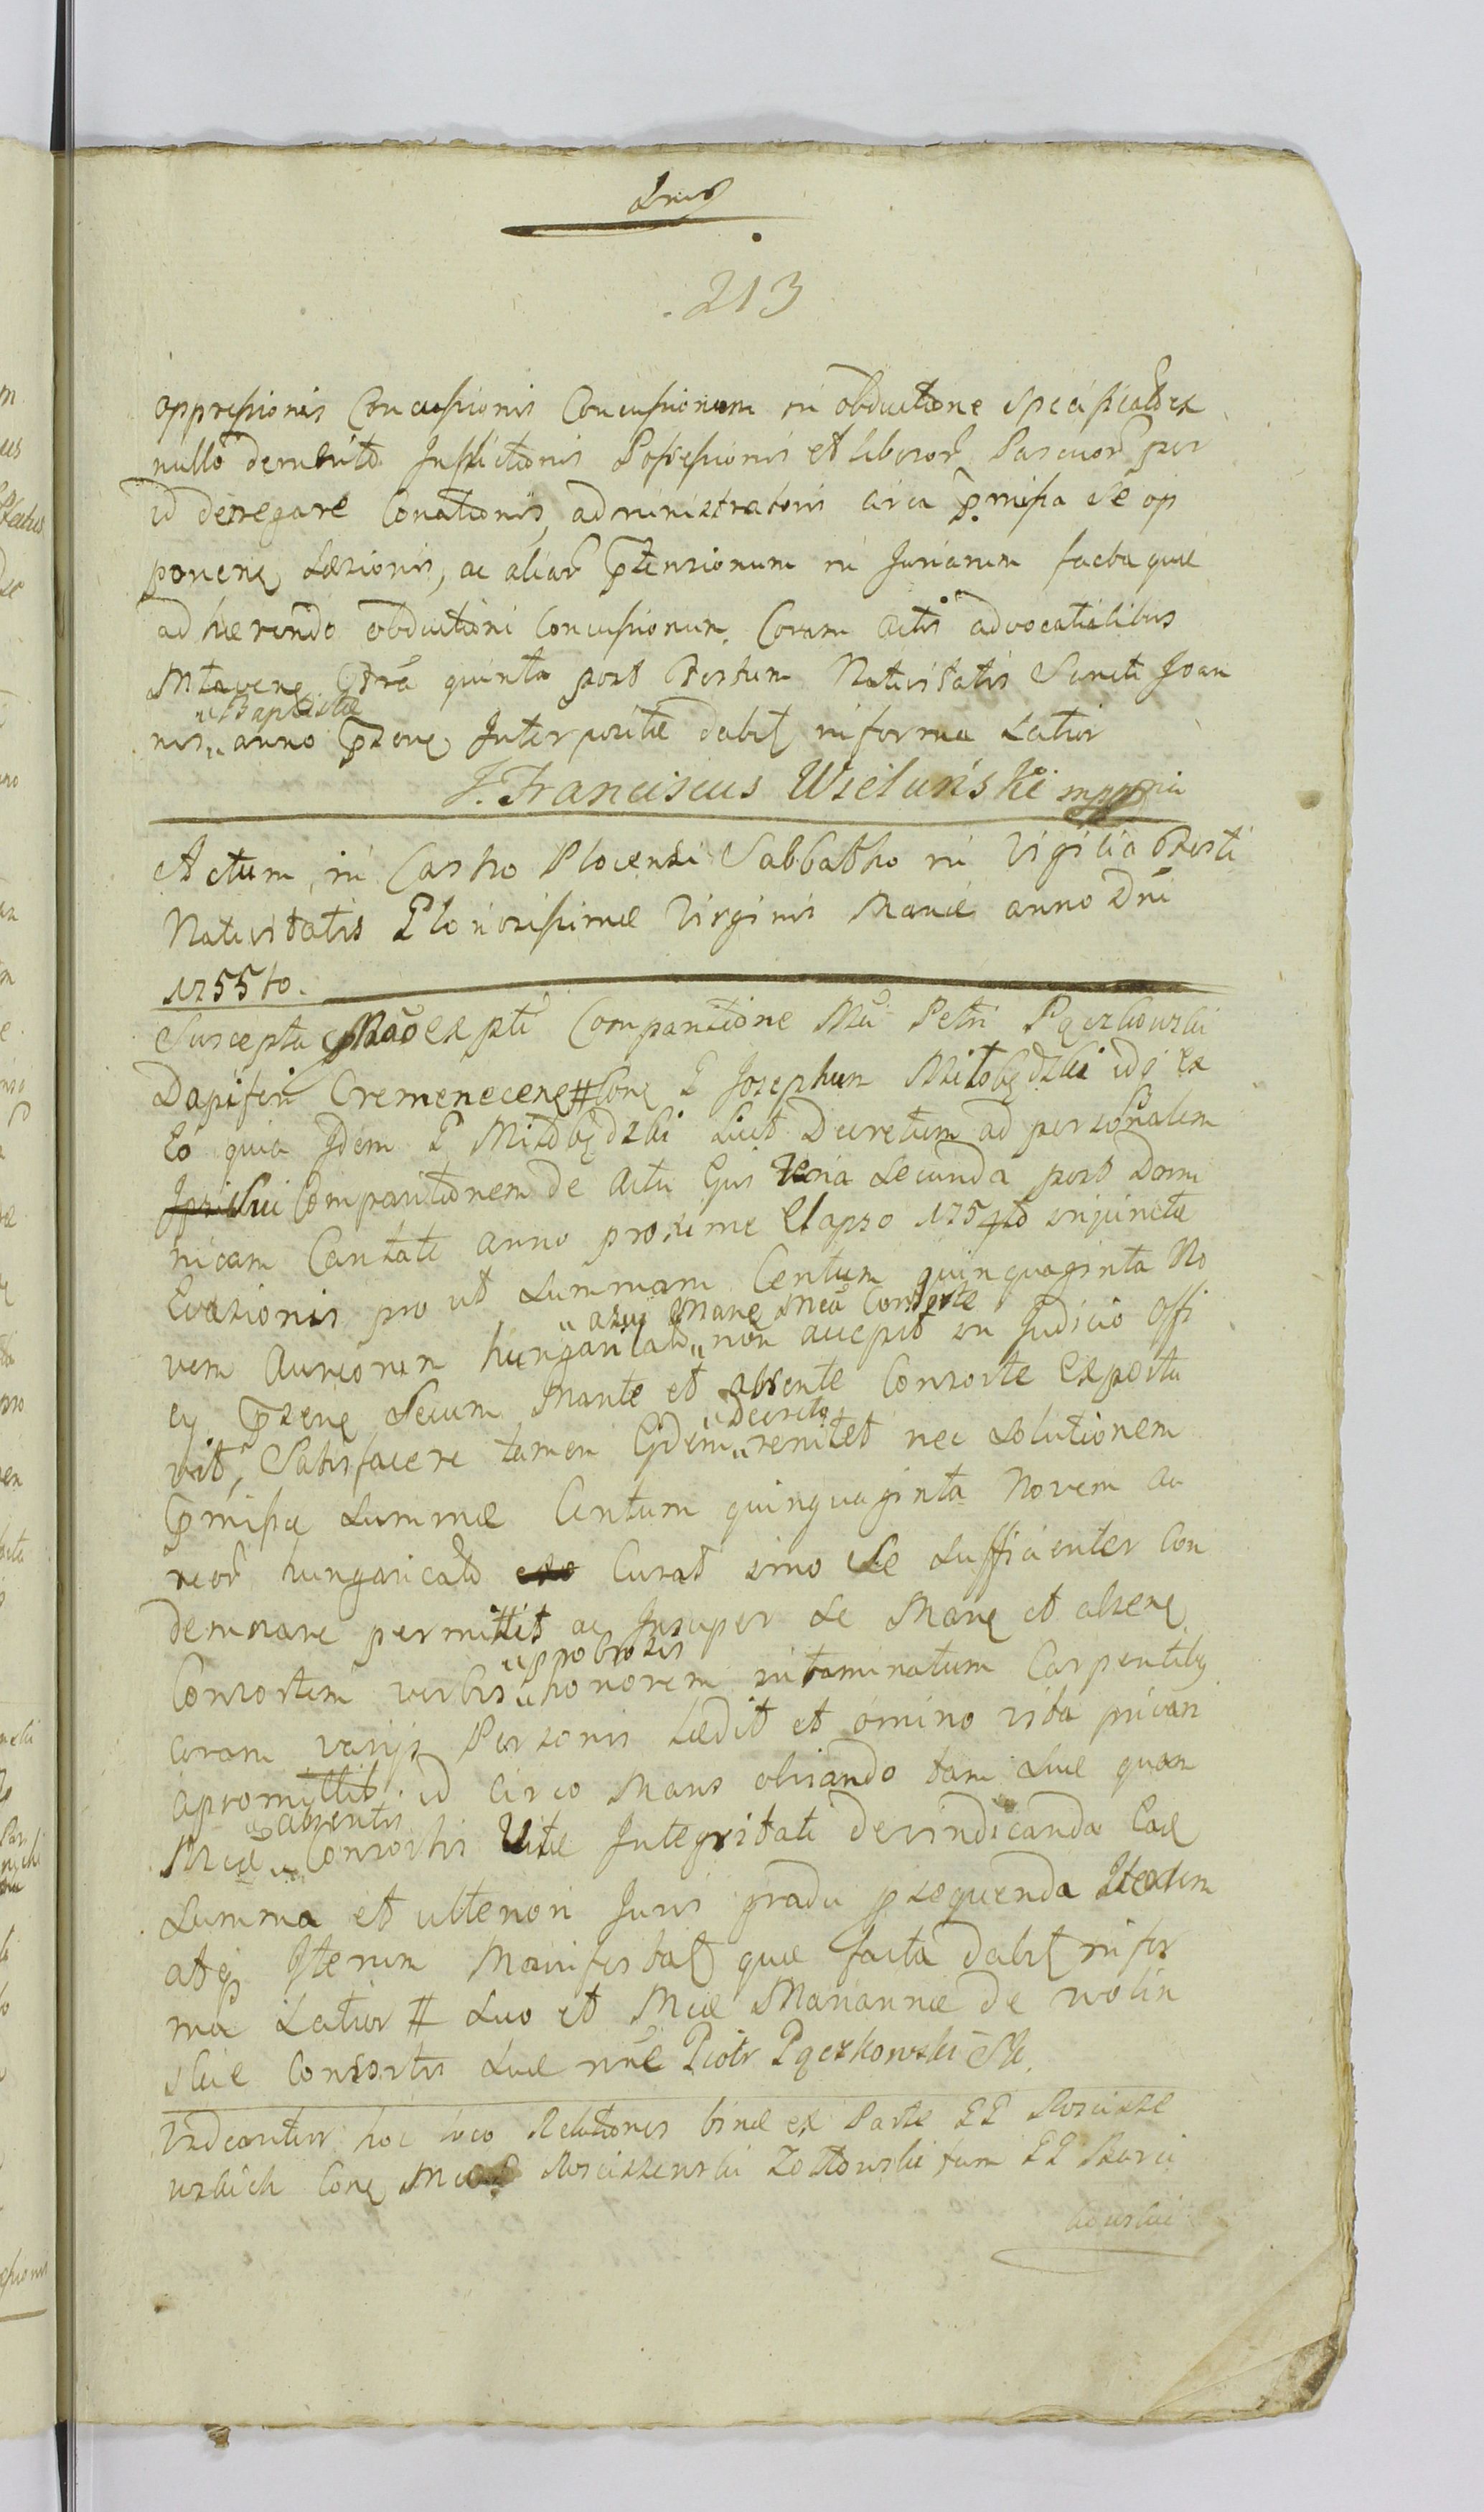 213
oppressionis Concussionis Concussionum in obductione specificatdex
nullo demerito Inflictionis Possessionis et liberor Pascuor per
id deregare Conationis, administratoris circa pmissa se op
ponens Læsionis, ac aliar ptensionum in Juriarum facta quæ
ad hærendo obductioni Concussionum. Coram actis advocatialibus
Mlavens fria quinta post Festum Nativitatis Sancti Joan
„Baptistæ
nis„ anno pzens Interpositæ dabit in forma Latior
F. Franciscus Wieluński mppria
Actum, in Castro Plocensi Sabbatho in Vigilia Festi
Nativitatis Gloriosissimæ Virginis Mariæ anno Dni
1755to.
Suscepta pnão expti Comparitione Mci Petri Pączkowski
Dapiferi Cremenecens # Cons G Josephum Miłobędzki idq ex
Eo quia Idem G Miłobędzki Licet Decretum ad personalem
Sui Comparitionem de Actu Ejus Feria Secunda post Domi
nicam Cantate anno proxime Elapso 1754to injunctæ
Evasionis pro ut Summam Centum quinquaginta No
„ a sua Mane Mca Consorte
vem Aureorum hungaricald„ non accepit in Judicio Offi
cy pzens Secum Mante et absente Consorte Expertu
„Decreto
vit, Satisfacere tamen Eidem„ renitet nec Solutionem
pmissæ Summæ Centum quinquaginta Novem Au
reor hungaricald Curat imo Se Sufficienter Con
demnare permittit ac Insuper Se Mane et absens
„pprobrosis
Consortem verbis„ honorem intaminatum Carpentibq
coram varijs Personis Lædit et omino vita privari
apromittit. id circo Mans obviando tam Suæ quam
„absentis
Mcæ„ Consortis Vitæ Integritati devindicanda Eaq
Summa et ulteriori Juris gradu psequenda Iterum
atq Iterum Manifestat quæ facta dabit in for
ma Latior # Suo et Mcæ Mariannæ de Wolin
skie Consortis Suæ nne Piotr Pączkowski SK.
Videantur hoc loco Relationes binæ ex Parte GG Kosciesze
wskich Cons Mcos Kosciszewski Zołtowski tum GG Skarci